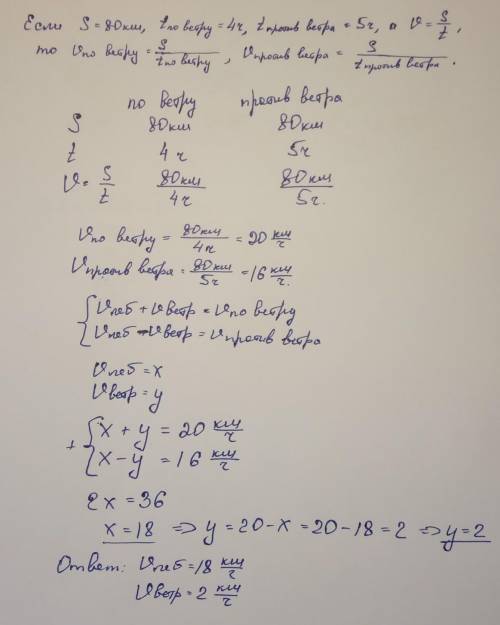 Если S = 80км, tпо ветру = 4ч, tпротив ветра = 5ч, а V = S/t,
то Vпо ветру = S/tпо ветру, Vпротив ветра = S/tпротив ветра.
по ветру против ветра
S 80км 80км
t 4ч 5ч
V = S/t 80км/4ч 80км/5ч.
Vпо ветру = 80км/4ч = 20 км/ч
Vпротив ветра = 80км/5ч = 16 км/ч.
{ Vлеб + Vветр = Vпо ветру
Vлеб - Vветр = Vпротив ветра
Vлеб = x
Vветр = y
+ { x + y = 20 км/ч
x - y = 16 км/ч
2x = 36
x = 18 => y = 20 - x = 20 - 18 = 2 => y = 2
Ответ: Vлеб = 18 км/ч
Vветр = 2 км/ч